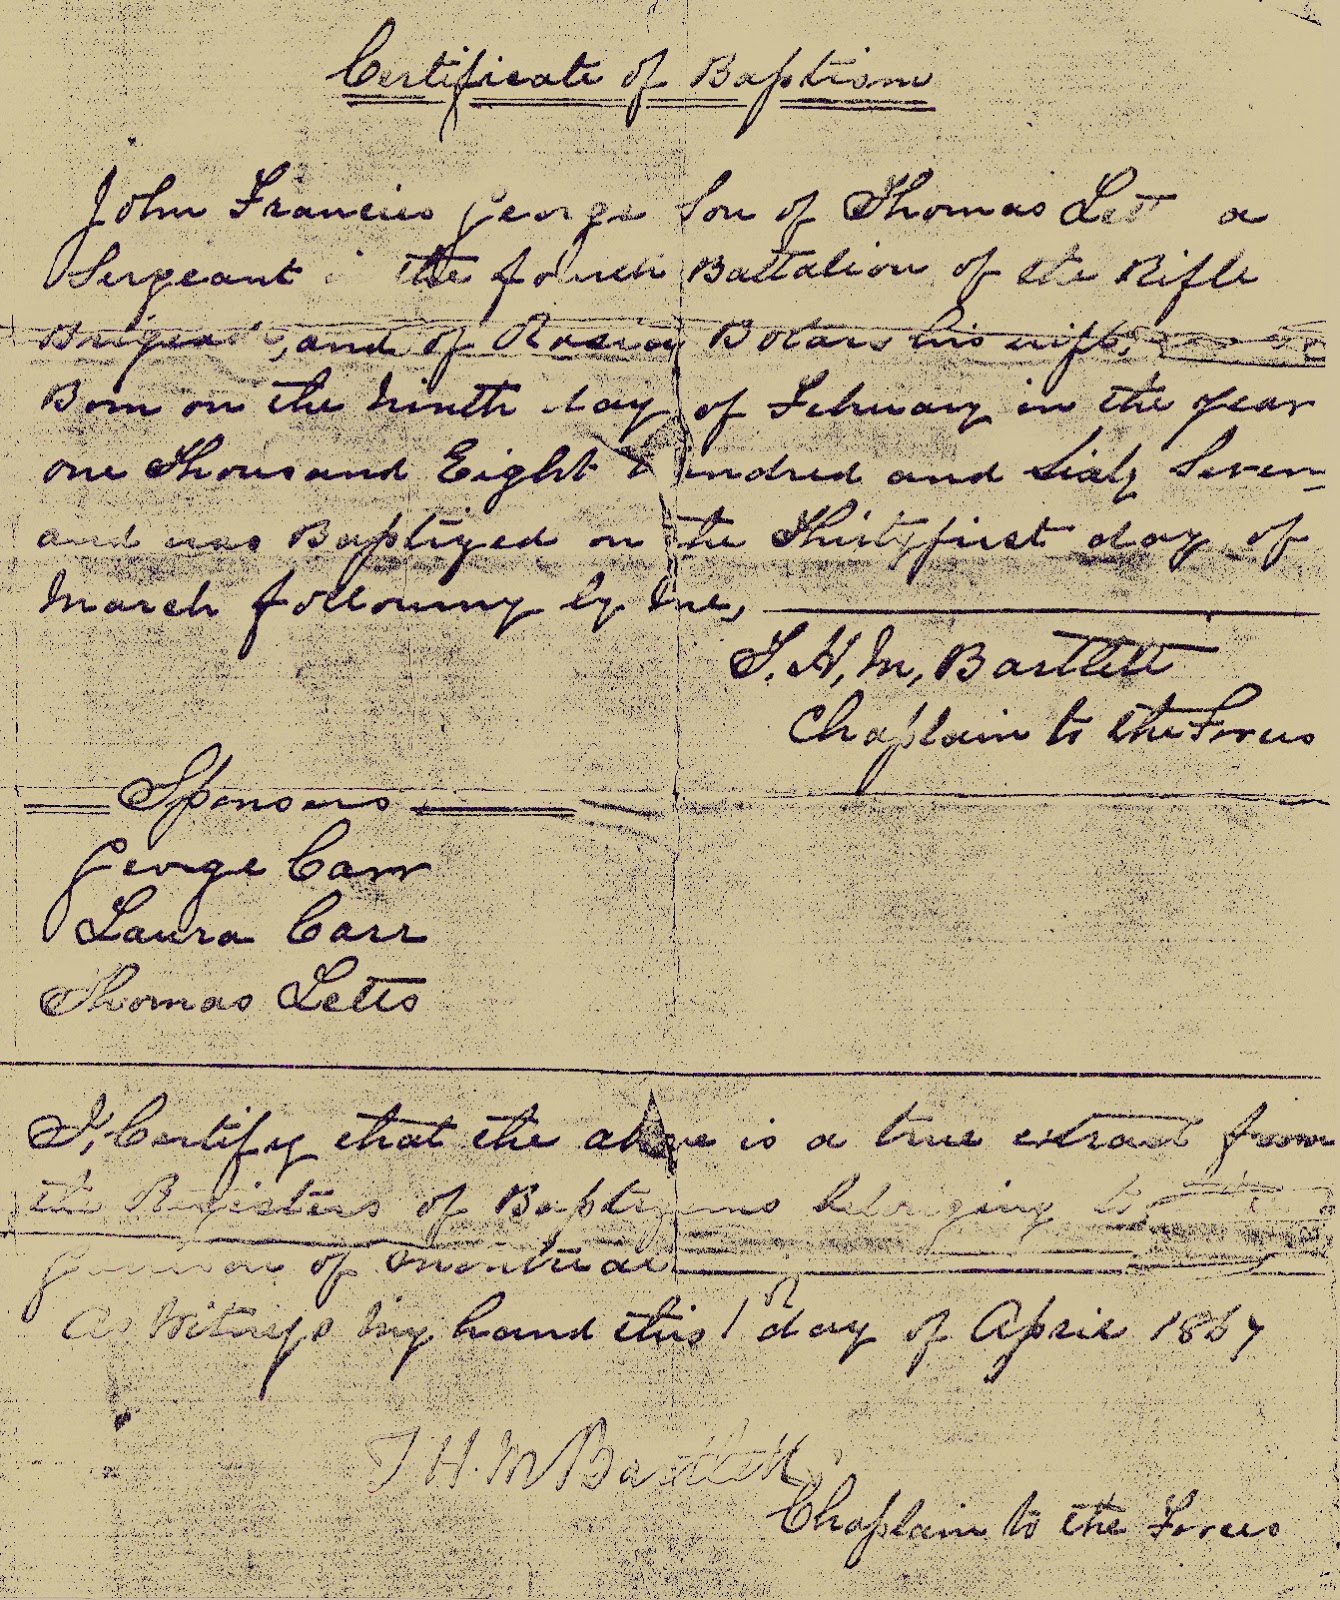 Certificate of Baptism
John Francis George Son of Thomas Lett a
Sergeant the fourth Battalion of the Rifle
and of his wife,
Born on the Ninth day of February in the year
one Thousand Eight Hundred and Sixty Seven
and was Baptized on the Thirty first day of
March following by Me,
T. H. M. Bartlett
Chaplain to the Forces
Sponsers
George Carr
Laura Carr
Thomas Letts
I, Certify that the above is a true extract from
the Registers of Baptizems belonging to
of Montreal
As Witness My hand this 1 day of April 1867
T H. M Bartlett
Chaplain to the Forces